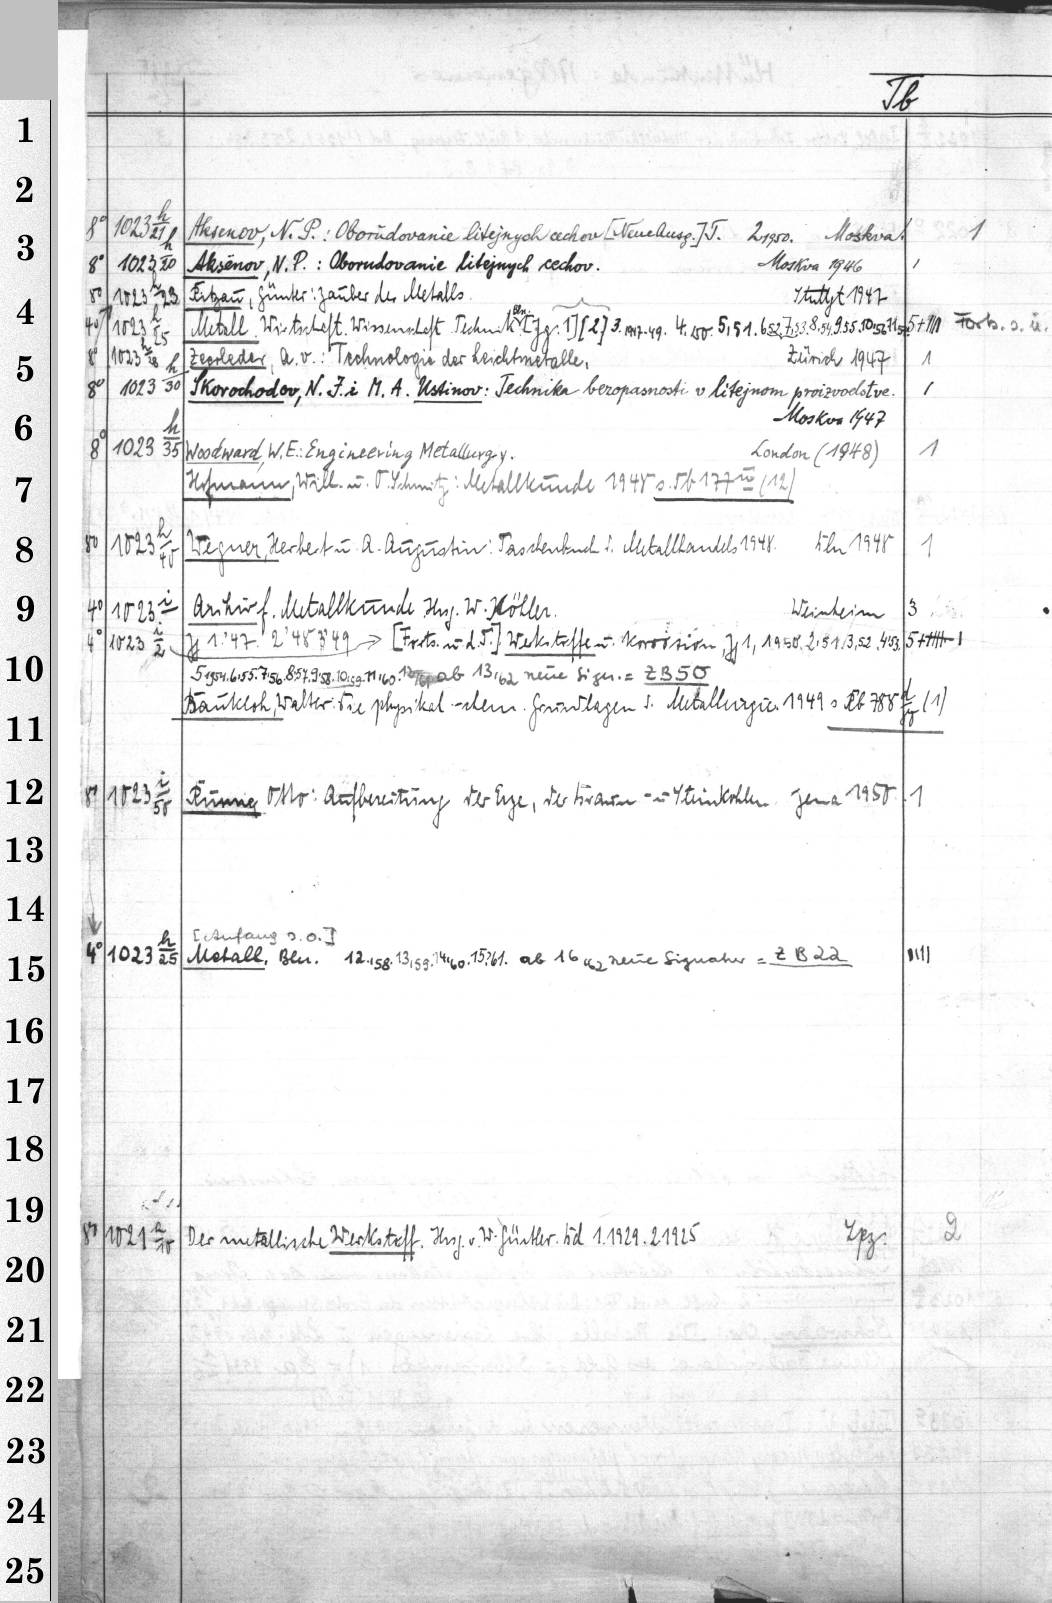 Tb
8° 1023 h/21 Aksenov, N. P.: Oborudovanie litejnych cechov [Neue Ausg.] T. 2 1950. Moskva! 1
8° 1023 h/20 Aksënov, N.P.: Oborudovanie litejnych cechov. Moskva 1946 1
8° 1023 h/23 Ritzau, Günter: Zauber des Metalls. Stuttgt 1947
4° 1023 h/25 Metall. Wirtschaft. Wissenschaft. Technik [Jg. 1][2] 3.1947-49. 4.1950. 5,51. 6,52. 7,53. 8,54. 9,55. 10,56 Forts. s. u.
8° 1023 h/28 Zeerleder, A. v.: Technologie der Leichtmetalle. Zürich 1947 1
8° 1023 h/30 Skorochodov, N. J. i M. A. Ustinov: Technika bezopasnosti v litejnom proizvodstve. 1
Moskva 1947
8° 1023 h/35 Woodward, W.E.: Engineering Metallurgy. London (1948) 1
Hofmann, Wilh. u. O. Schmitz: Metallkunde 1948 s. Tb 177 (12)
8° 1023 h/40 Wegner, Herbert u. A. Augustin: Taschenbuch d. Metallhandels 1948. Bln 1948 1
4° 1023 i Archiv f. Metallkunde Hrsg. W. Köhler. Weinheim 3
4° 1023 i/2 Jg 1.'47. 2'48 3'49 → [Forts. u. d. T.] Werkstoffe u. Korrosion, Jg 1, 1950. 2,51. 3,52. 4,53.
5 1954. 6,55. 7,56. 8,57. 9,58. 10,59. 11,60. 12,61 ab 13,62 neue Sign. = ZB 50
Baukloh, Walter: Die physikal.-chem. Grundlagen d. Metallurgie 1949 s. Rb 788 (1)
8° 1023 i/50 Rünnig Otto: Aufbereitung der Erze, der Braun- u Steinkohlen. Jena 1950. 1
[Anfang s. o.]
4° 1023 h/25 Metall, Bln. 12,58. 13,59. 14,60. 15,61. ab 16,62 neue Signatur = ZB 22
8° 1021 a/10 Der metallische Werkstoff. Hrsg. v. W. Gürtler. Bd 1.1929. 2.1925 Lpz. 2
1
2
3
4
5
6
7
8
9
10
11
12
13
14
15
16
17
18
19
20
21
22
23
24
25